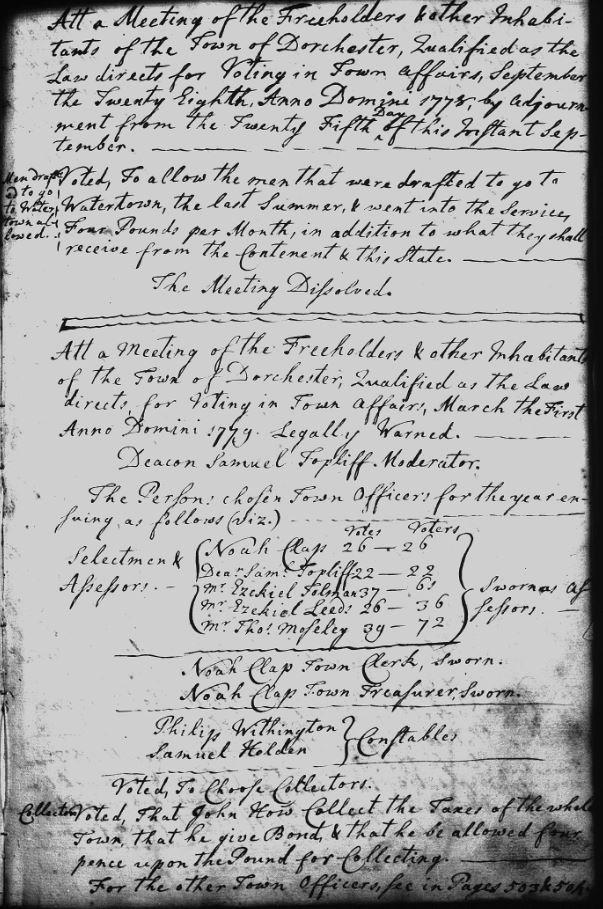 Att a Meeting of the Freeholders & other Inhabi-
tants of the Town of Dorchester, Qualified as the
Law directs for Voting in Town affairs, September
the Twenty Eighth, Anno Domini 1778, by adjourn-
ment from the Twenty Fifth Day of this Instant Sep-
tember.
Men draft-
ed to go
to Water
town al
lowed.
Voted, To allow the men that were drafted to go to
Watertown, the last Summer, & went into the Service,
Four Pounds per Month, in addition to what they shall
receive from the Contenent & this State.
The Meeting Dissolved.
Att a Meeting of the Freeholders & other Inhabitants
of the Town of Dorchester, Qualified as the Law
directs, for Voting in Town affairs, March the First
Anno Domini 1779. Legally Warned.
Deacon Samuel Topliff. Moderator.
The Persons chosen Town Officers for the year en-
suing as follows (viz.)
Votes Voters
Selectmen &
Assessors. -
Noah Clap 26 — 26
Dea. Sam. Topliff 22 — 22
Mr. Ezekiel Tolman 37 — 65
Mr. Ezekiel Leeds 26 — 36
Mr. Thos. Moseley 39 — 72
Sworn as As
sessors.
Noah Clap Town Clerk, Sworn.
Noah Clap Town Treasurer, Sworn.
Philip Withington
Samuel Holden
Constables
Voted, To Choose Collectors.
Collector
Voted, That John How Collect the Taxes of the whole
Town, that he give Bond, & that he be allowed four
pence upon the Pound for Collecting.
For the other Town Officers, see in Pages 503 & 504.